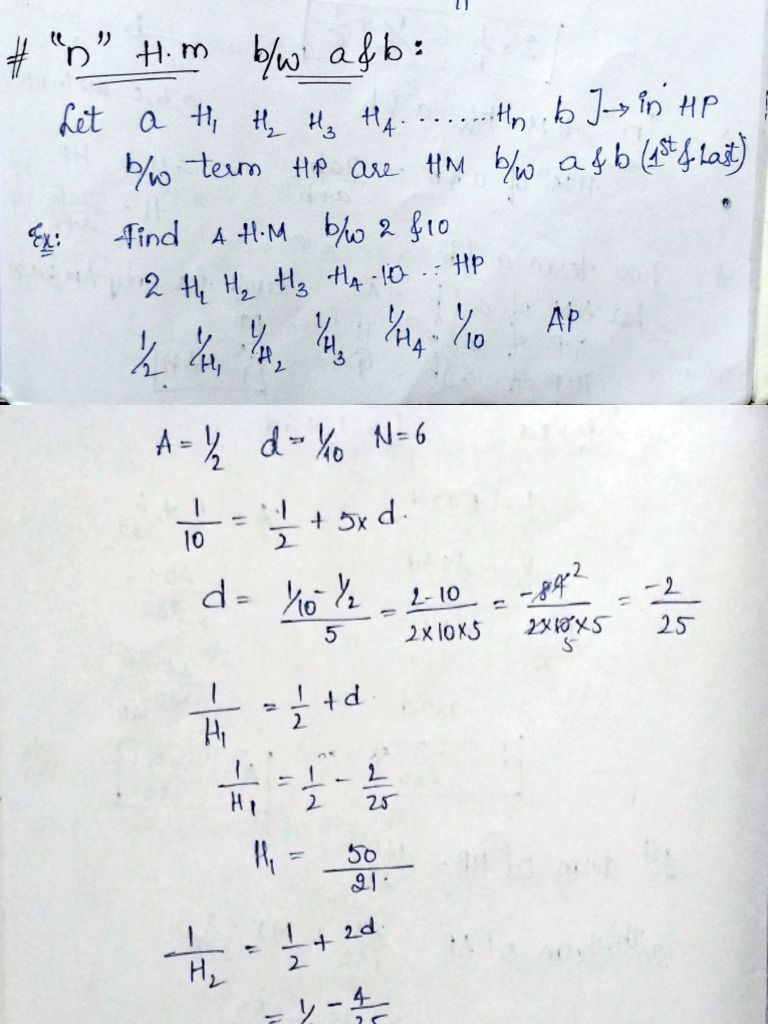 # "n" H.m b/w a & b:
Let a H₁ H₂ H₃ H₄ ........ Hn, b ] → in HP
b/w term HP are HM b/w a & b (1st & Last)
Ex: Find 4 H.M b/w 2 & 10
2 H₁ H₂ H₃ H₄ 10 .. HP
1/2 1/H₁ 1/H₂ 1/H₃ 1/H₄ 1/10 AP
A = 1/2 d = 1/10 N = 6
1/10 = 1/2 + 5x d.
d = (1/10 - 1/2)/5 = (2-10)/(2x10x5) = /(2x10x5) = -2/25
1/H₁ = 1/2 + d
1/H₁ = 1/2 - 2/25
H₁ = 50/21.
1/H₂ = 1/2 + 2d
= 1/ - 4/25